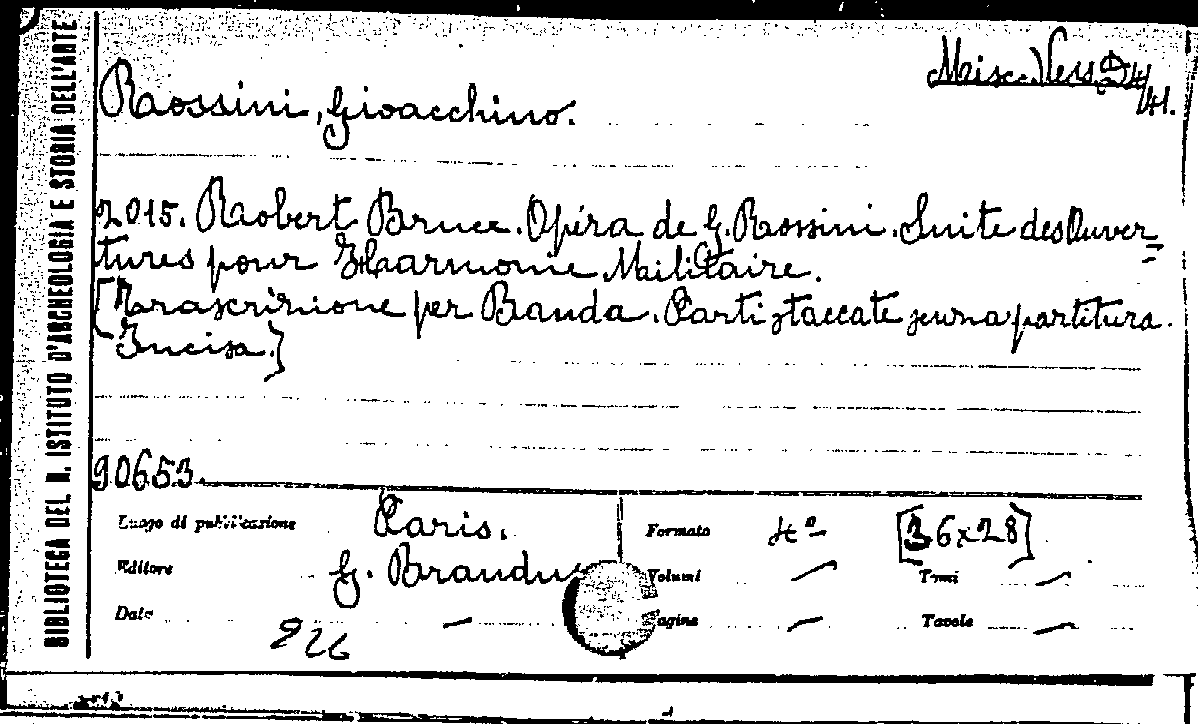 BIBLIOTECA DEL R. ISTITUTO D'ARCHEOLOGIA E STORIA DELL'ARTE
Misc. Vess.
41.
Rossini, Gioacchino.
2015. Robert Bruce. Opéra de G. Rossini. Suite des Ouver=
tures pour Harmonie Militaire.
[Trascrizione per Banda. Parti staccate senza partitura.
Incisa.]
90653.
Luogo di pubblicazione Paris. Formato 4º [36x28]
Editore G. Brandus Volumi — Tomi —
Date — Pagine — Tavole —
826